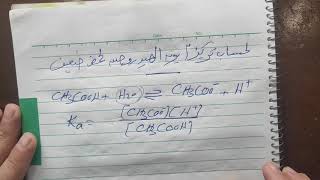 لحساب تركيز أيون الهيدروجين لحمض ضعيف
CH3COOH + H2O ⇌ CH3COO⁻ + H⁺
Ka = [CH3COO⁻][H⁺] / [CH3COOH]